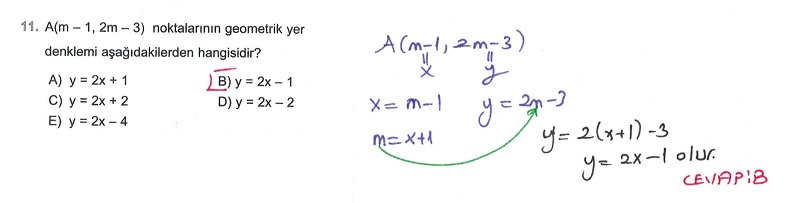 11. A(m – 1, 2m – 3) noktalarının geometrik yer
denklemi aşağıdakilerden hangisidir?
A) y = 2x + 1 B) y = 2x – 1
C) y = 2x + 2 D) y = 2x – 2
E) y = 2x – 4
A(m-1, 2m-3)
x y
x = m-1 y = 2m-3
m = x+1
y = 2(x+1)-3
y = 2x-1 olur.
CEVAP B